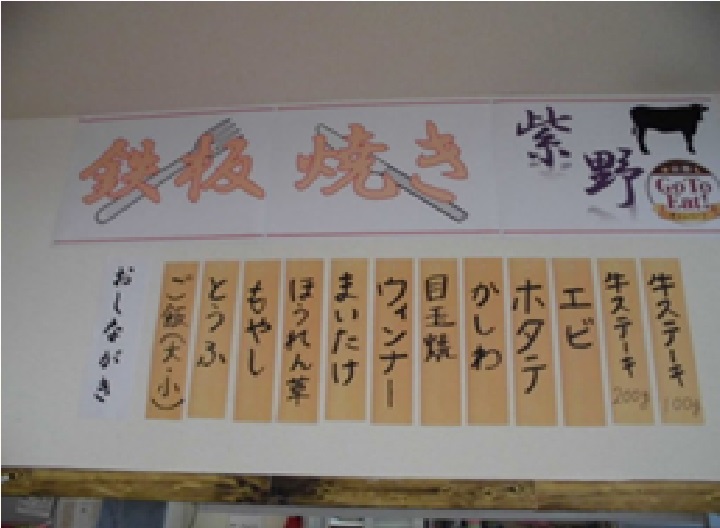 鉄板焼き
紫野
Go To
Eat!
牛ステーキ 100g
牛ステーキ 200g
エビ
ホタテ
かしわ
目玉焼
ウィンナー
まいたけ
ほうれん草
もやし
とうふ
ご飯(大・小)
おしながき